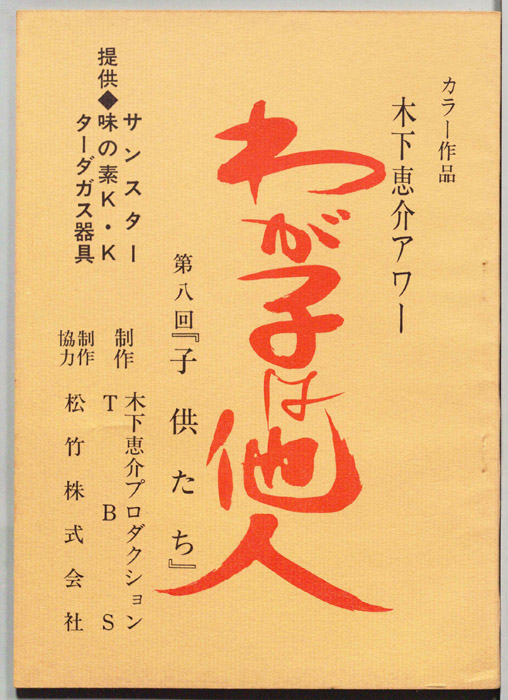 カラー作品
木下恵介アワー
わが子は他人
第八回『子供たち』
提供◆サンスター
味の素K・K
ターダガス器具
制作 木下恵介プロダクション
TBS
制作協力 松竹株式会社